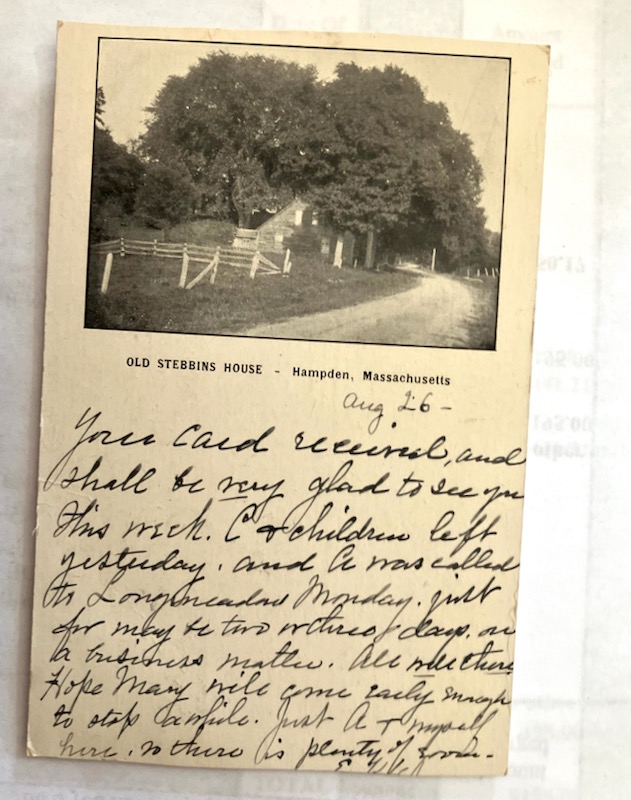 OLD STEBBINS HOUSE - Hampden, Massachusetts
Aug 26-
Your card received, and
shall be very glad to see you
this week. C + children left
yesterday. and A was called
to Longmeadow Monday. just
for may be two or three days. on
a business matter. All well there
Hope Mary will come early enough
to stop awhile. Just A + myself
here. so there is plenty of room-